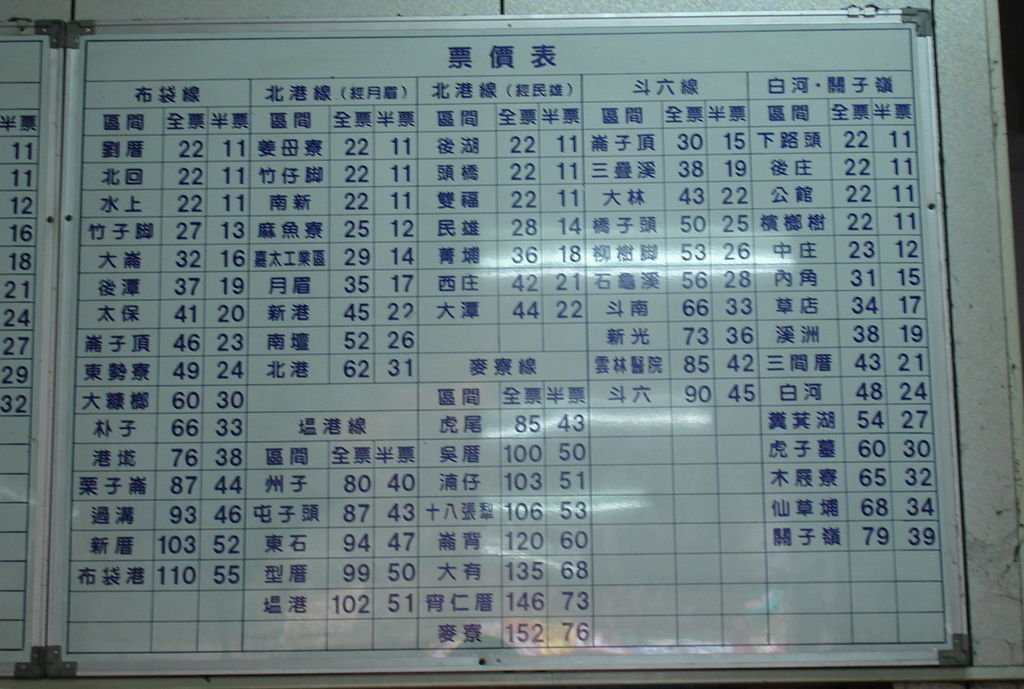 票價表
布袋線 北港線（經月眉） 北港線（經民雄） 斗六線 白河·關子嶺
半票 區間 全票 半票 區間 全票 半票 區間 全票 半票 區間 全票 半票 區間 全票 半票
11 劉厝 22 11 姜母寮 22 11 後湖 22 11 崙子頂 30 15 下路頭 22 11
11 北回 22 11 竹仔脚 22 11 頭橋 22 11 三疊溪 38 19 後庄 22 11
12 水上 22 11 南新 22 11 雙福 22 11 大林 43 22 公館 22 11
16 竹子脚 27 13 麻魚寮 25 12 民雄 28 14 橋子頭 50 25 檳榔樹 22 11
18 大崙 32 16 嘉太工業區 29 14 菁埔 36 18 柳樹脚 53 26 中庄 23 12
21 後潭 37 19 月眉 35 17 西庄 42 21 石龜溪 56 28 內角 31 15
24 太保 41 20 新港 45 22 大潭 44 22 斗南 66 33 草店 34 17
27 崙子頂 46 23 南壇 52 26 新光 73 36 溪洲 38 19
29 東勢寮 49 24 北港 62 31 麥寮線 雲林醫院 85 42 三間厝 43 21
32 大糠榔 60 30 區間 全票 半票 斗六 90 45 白河 48 24
朴子 66 33 塭港線 虎尾 85 43 糞萁湖 54 27
港墘 76 38 區間 全票 半票 吳厝 100 50 虎子墓 60 30
栗子崙 87 44 州子 80 40 湳仔 103 51 木屐寮 65 32
過溝 93 46 屯子頭 87 43 十八張犁 106 53 仙草埔 68 34
新厝 103 52 東石 94 47 崙背 120 60 關子嶺 79 39
布袋港 110 55 型厝 99 50 大有 135 68
塭港 102 51 胥仁厝 146 73
麥寮 152 76